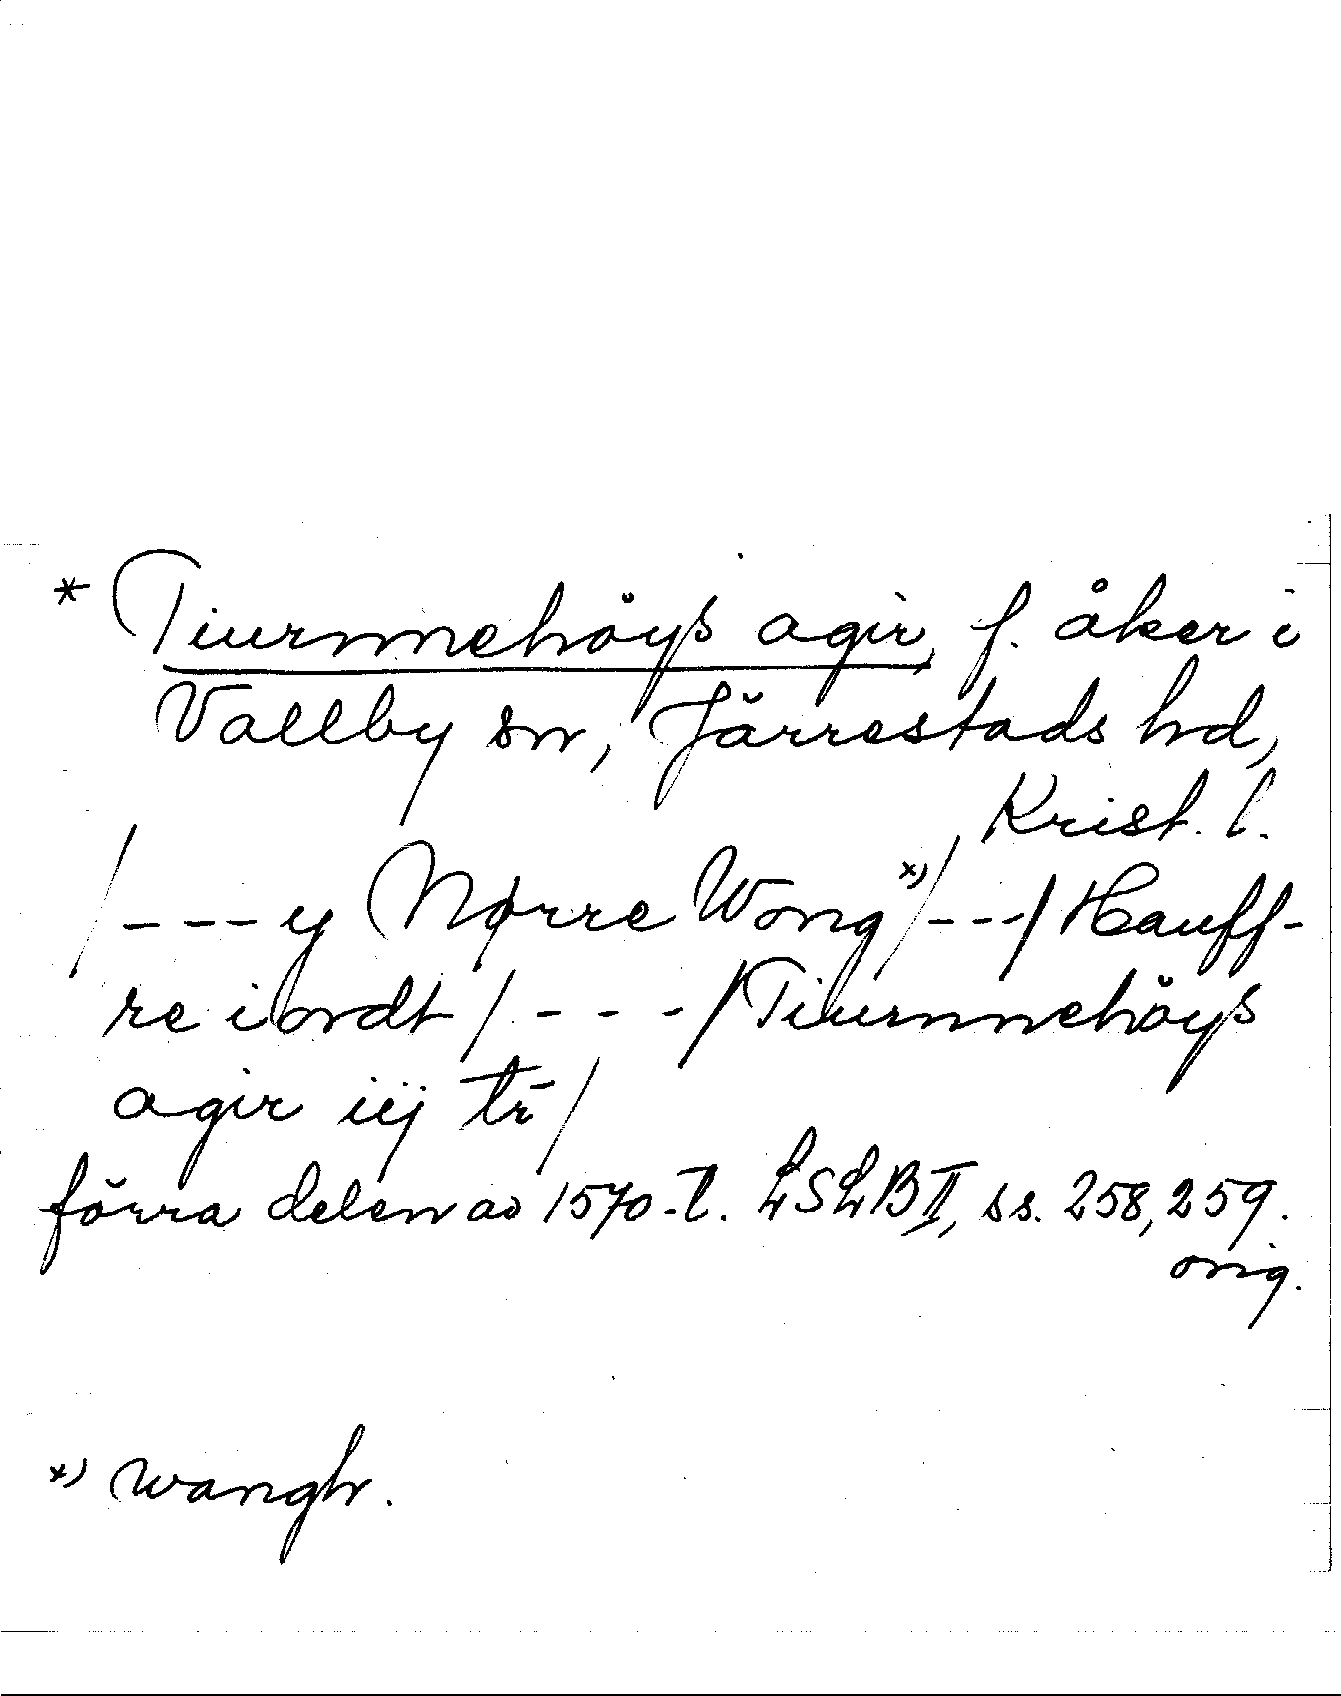 * Tiurnnehöys agir, f. åker i
Vallby sn, Järrestads hd,
Krist. l.
/---y Nørre Wong *)/---/ Hauff-
re iordt /---/ Tiurnnehöys
agir iij tr̄/
förra delen av 1570-t. LSLB II, ss. 258, 259.
orig.
*) wangh.